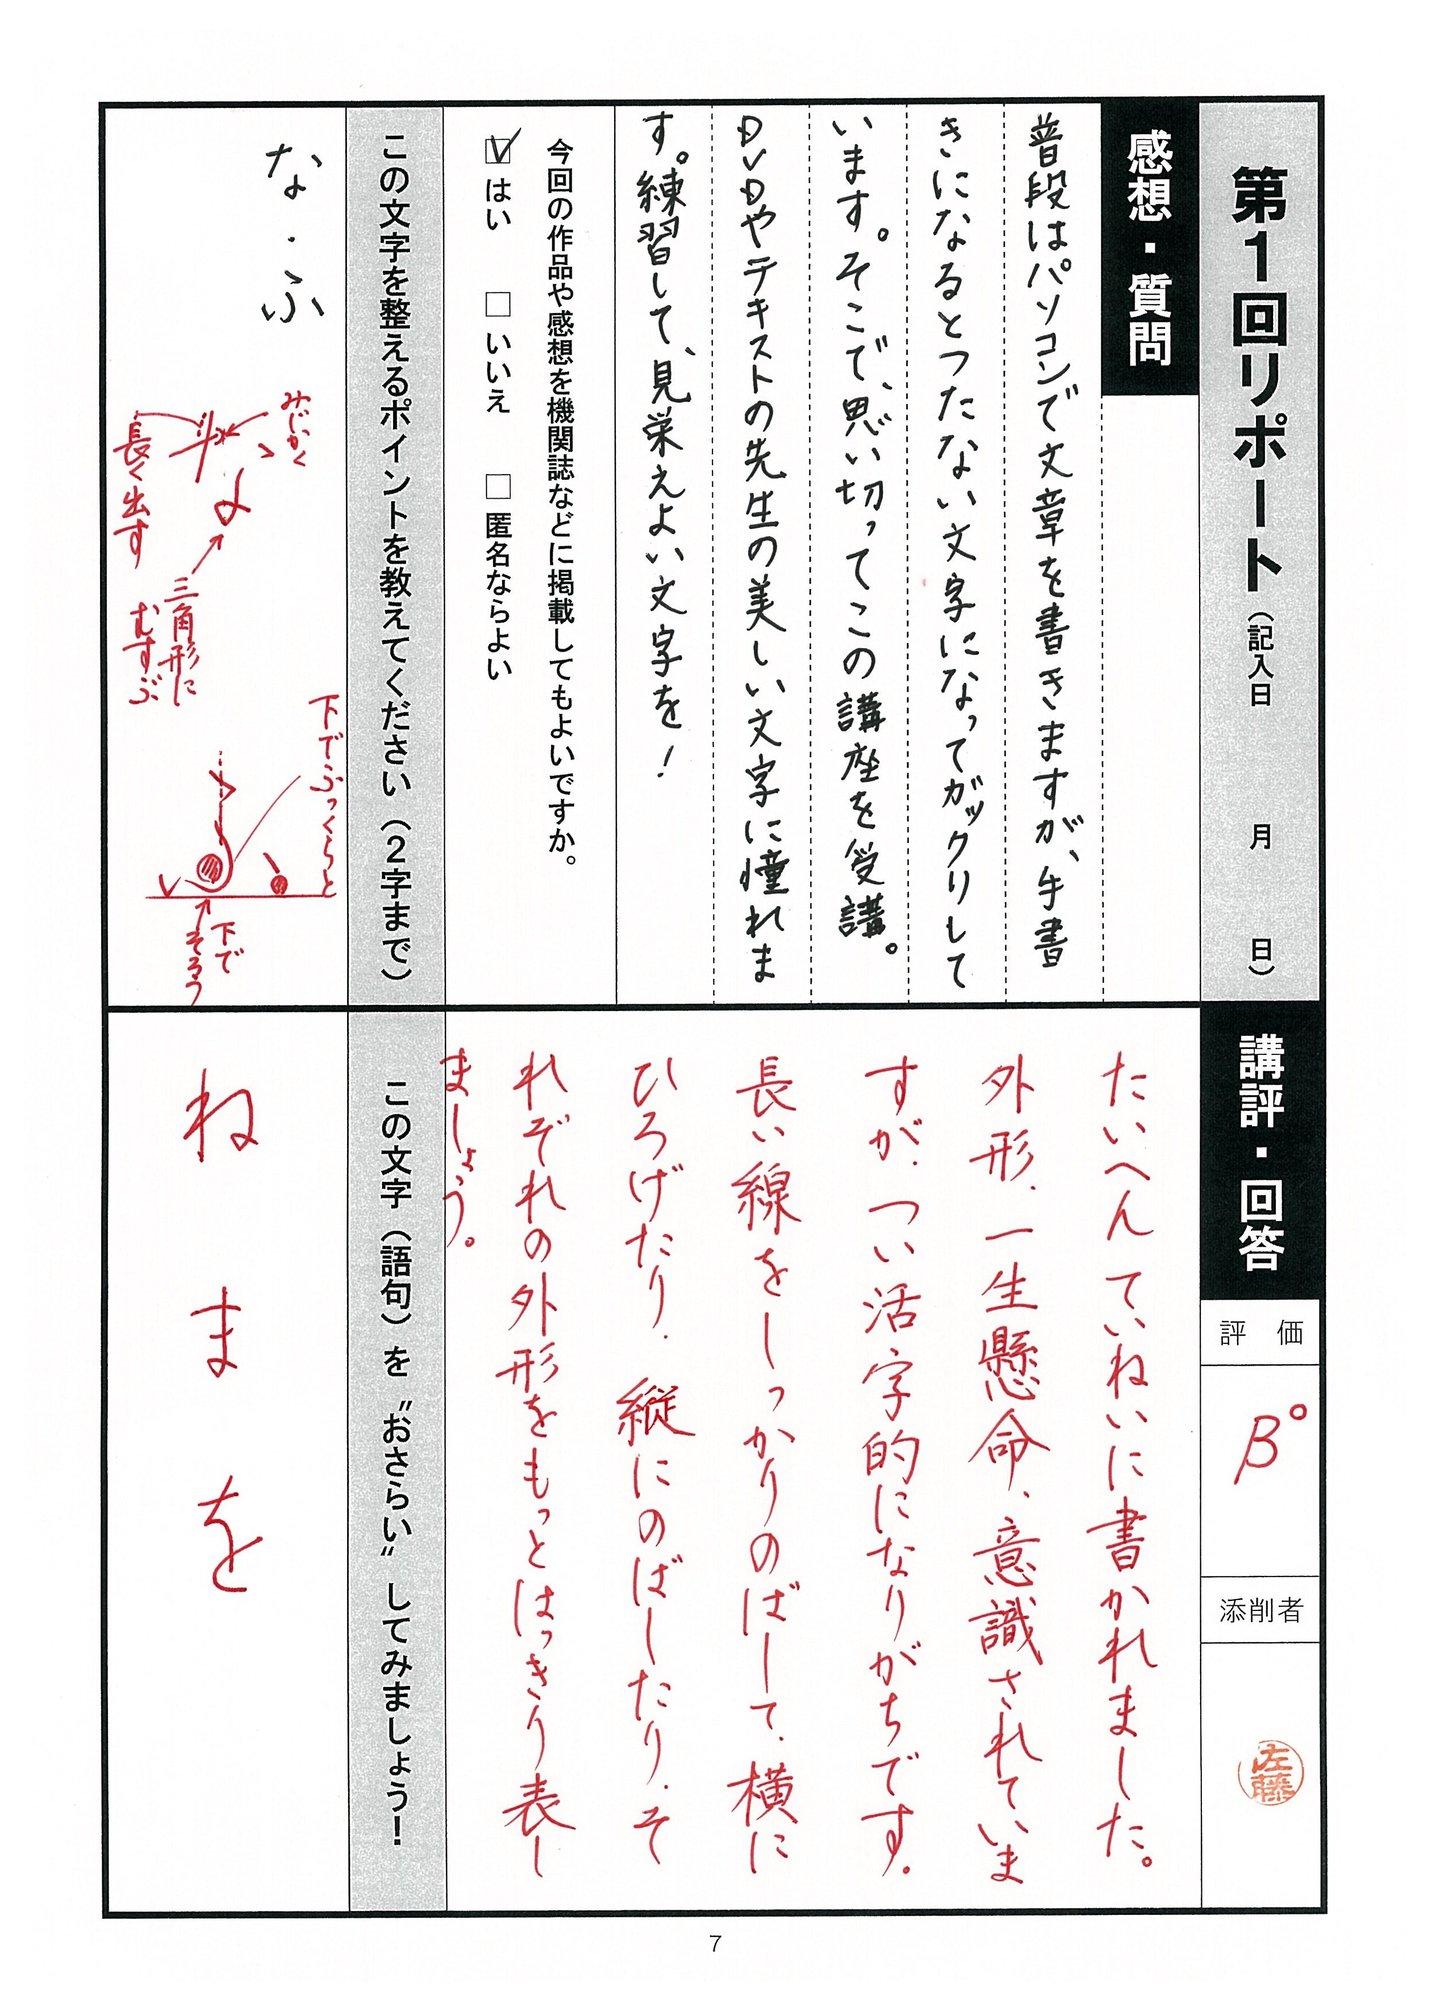 第1回リポート（記入日　月　日）
感想・質問
普段はパソコンで文章を書きますが、手書
きになるとつたない文字になってガックリして
います。そこで、思い切ってこの講座を受講。
DVDやテキストの先生の美しい文字に憧れま
す。練習して、見栄えよい文字を！
今回の作品や感想を機関誌などに掲載してもよいですか。
☑はい　□いいえ　□匿名ならよい
この文字を整えるポイントを教えてください（2字まで）
な・ふ
みじかく
長く出す
三角形に
むすぶ
下でふっくらと
下で
そろう
講評・回答
評価
β°
添削者
佐藤
たいへんていねいに書かれました。
外形、一生懸命、意識されていま
すが、つい活字的になりがちです。
長い線をしっかりのばして、横に
ひろげたり、縦にのばしたり、そ
れぞれの外形をもっとはっきり表し
ましょう。
この文字（語句）を〝おさらい〟してみましょう！
ね ま を
7